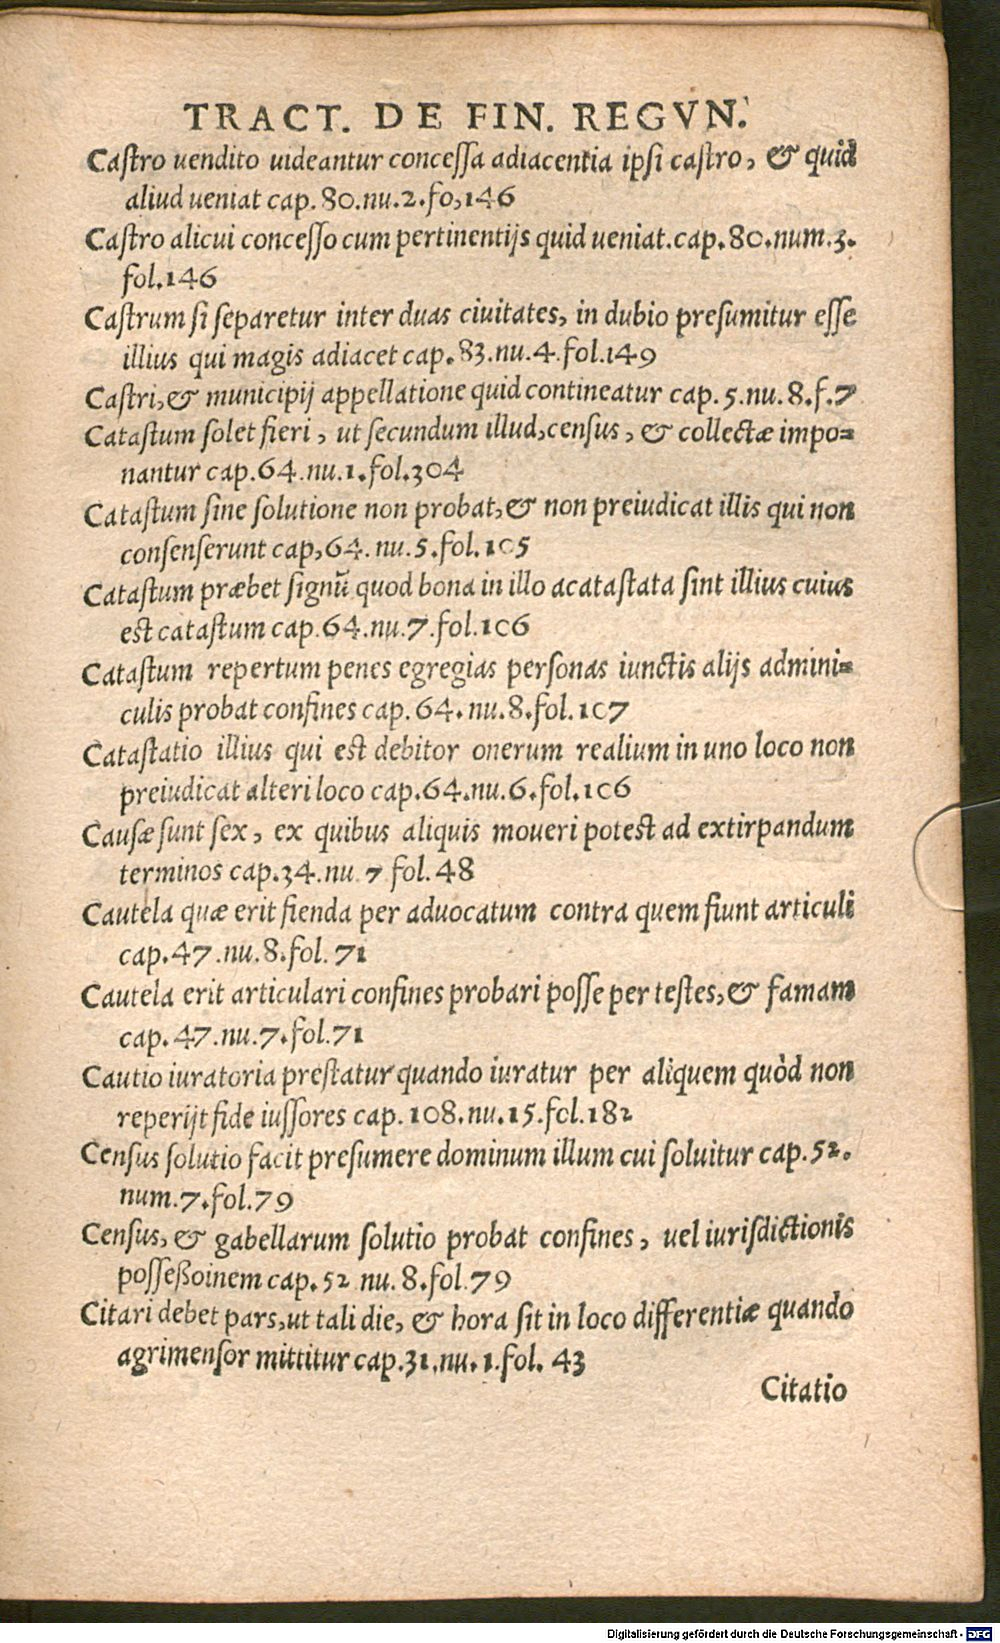 TRACT. DE FIN. REGVN.
Castro uendito uideantur concessa adiacentia ipsi castro, & quid
aliud ueniat cap. 80.nu.2.fo,146
Castro alicui concesso cum pertinentijs quid ueniat.cap.80.num.3.
fol.146
Castrum si separetur inter duas ciuitates, in dubio presumitur esse
illius qui magis adiacet cap.83.nu.4.fol.149
Castri,& municipij appellatione quid contineatur cap.5.nu.8.f.7
Catastum solet fieri, ut secundum illud,census, & collectæ impo=
nantur cap.64.nu.1.fol.304
Catastum sine solutione non probat,& non preiudicat illis qui non
consenserunt cap,64.nu.5.fol.105
Catastum præbet signū quod bona in illo acatastata sint illius cuius
est catastum cap.64.nu.7.fol.106
Catastum repertum penes egregias personas iunctis alijs admini=
culis probat confines cap.64.nu.8.fol.107
Catastatio illius qui est debitor onerum realium in uno loco non
preiudicat alteri loco cap.64.nu.6.fol.106
Causæ sunt sex, ex quibus aliquis moueri potest ad extirpandum
terminos cap.34.nu 7 fol.48
Cautela quæ erit fienda per aduocatum contra quem fiunt articuli
cap.47.nu.8.fol.71
Cautela erit articulari confines probari posse per testes,& famam
cap.47.nu.7.fol.71
Cautio iuratoria prestatur quando iuratur per aliquem quòd non
reperijt fide iussores cap.108.nu.15.fol.182
Census solutio facit presumere dominum illum cui soluitur cap.52.
num.7.fol.79
Census,& gabellarum solutio probat confines, uel iurisdictionis
posseßoinem cap.52 nu.8.fol.79
Citari debet pars,ut tali die, & hora sit in loco differentiæ quando
agrimensor mittitur cap.31.nu.1.fol.43
Citatio
Digitalisierung gefördert durch die Deutsche Forschungsgemeinschaft - DFG